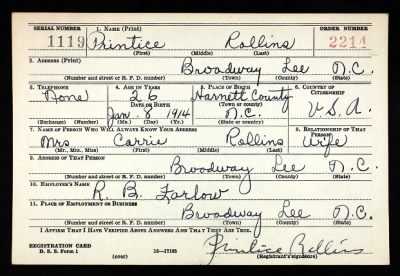 SERIAL NUMBER 1. NAME (Print) ORDER NUMBER
1119 Printice Rollins 2214
(First) (Middle) (Last)
2. ADDRESS (Print)
Broadway Lee N.C.
(Number and street or R. F. D. number) (Town) (County) (State)
3. TELEPHONE 4. AGE IN YEARS 5. PLACE OF BIRTH 6. COUNTRY OF CITIZENSHIP
None 26 Harnett County
DATE OF BIRTH (Town or county)
Jan. 8 1914 N.C. U.S.A.
(Exchange) (Number) (Mo.) (Day) (Yr.) (State or country)
7. NAME OF PERSON WHO WILL ALWAYS KNOW YOUR ADDRESS 8. RELATIONSHIP OF THAT PERSON
Mrs Carrie Rollins Wife
(Mr., Mrs., Miss) (First) (Middle) (Last)
9. ADDRESS OF THAT PERSON
Broadway Lee N.C.
(Number and street or R. F. D. number) (Town) (County) (State)
10. EMPLOYER'S NAME
R. B. Farlow
11. PLACE OF EMPLOYMENT OR BUSINESS
Broadway Lee N.C.
(Number and street or R. F. D. number) (Town) (County) (State)
I AFFIRM THAT I HAVE VERIFIED ABOVE ANSWERS AND THAT THEY ARE TRUE.
Printice Rollins
REGISTRATION CARD
D. S. S. Form 1 (over) 16—17105 (Registrant's signature)